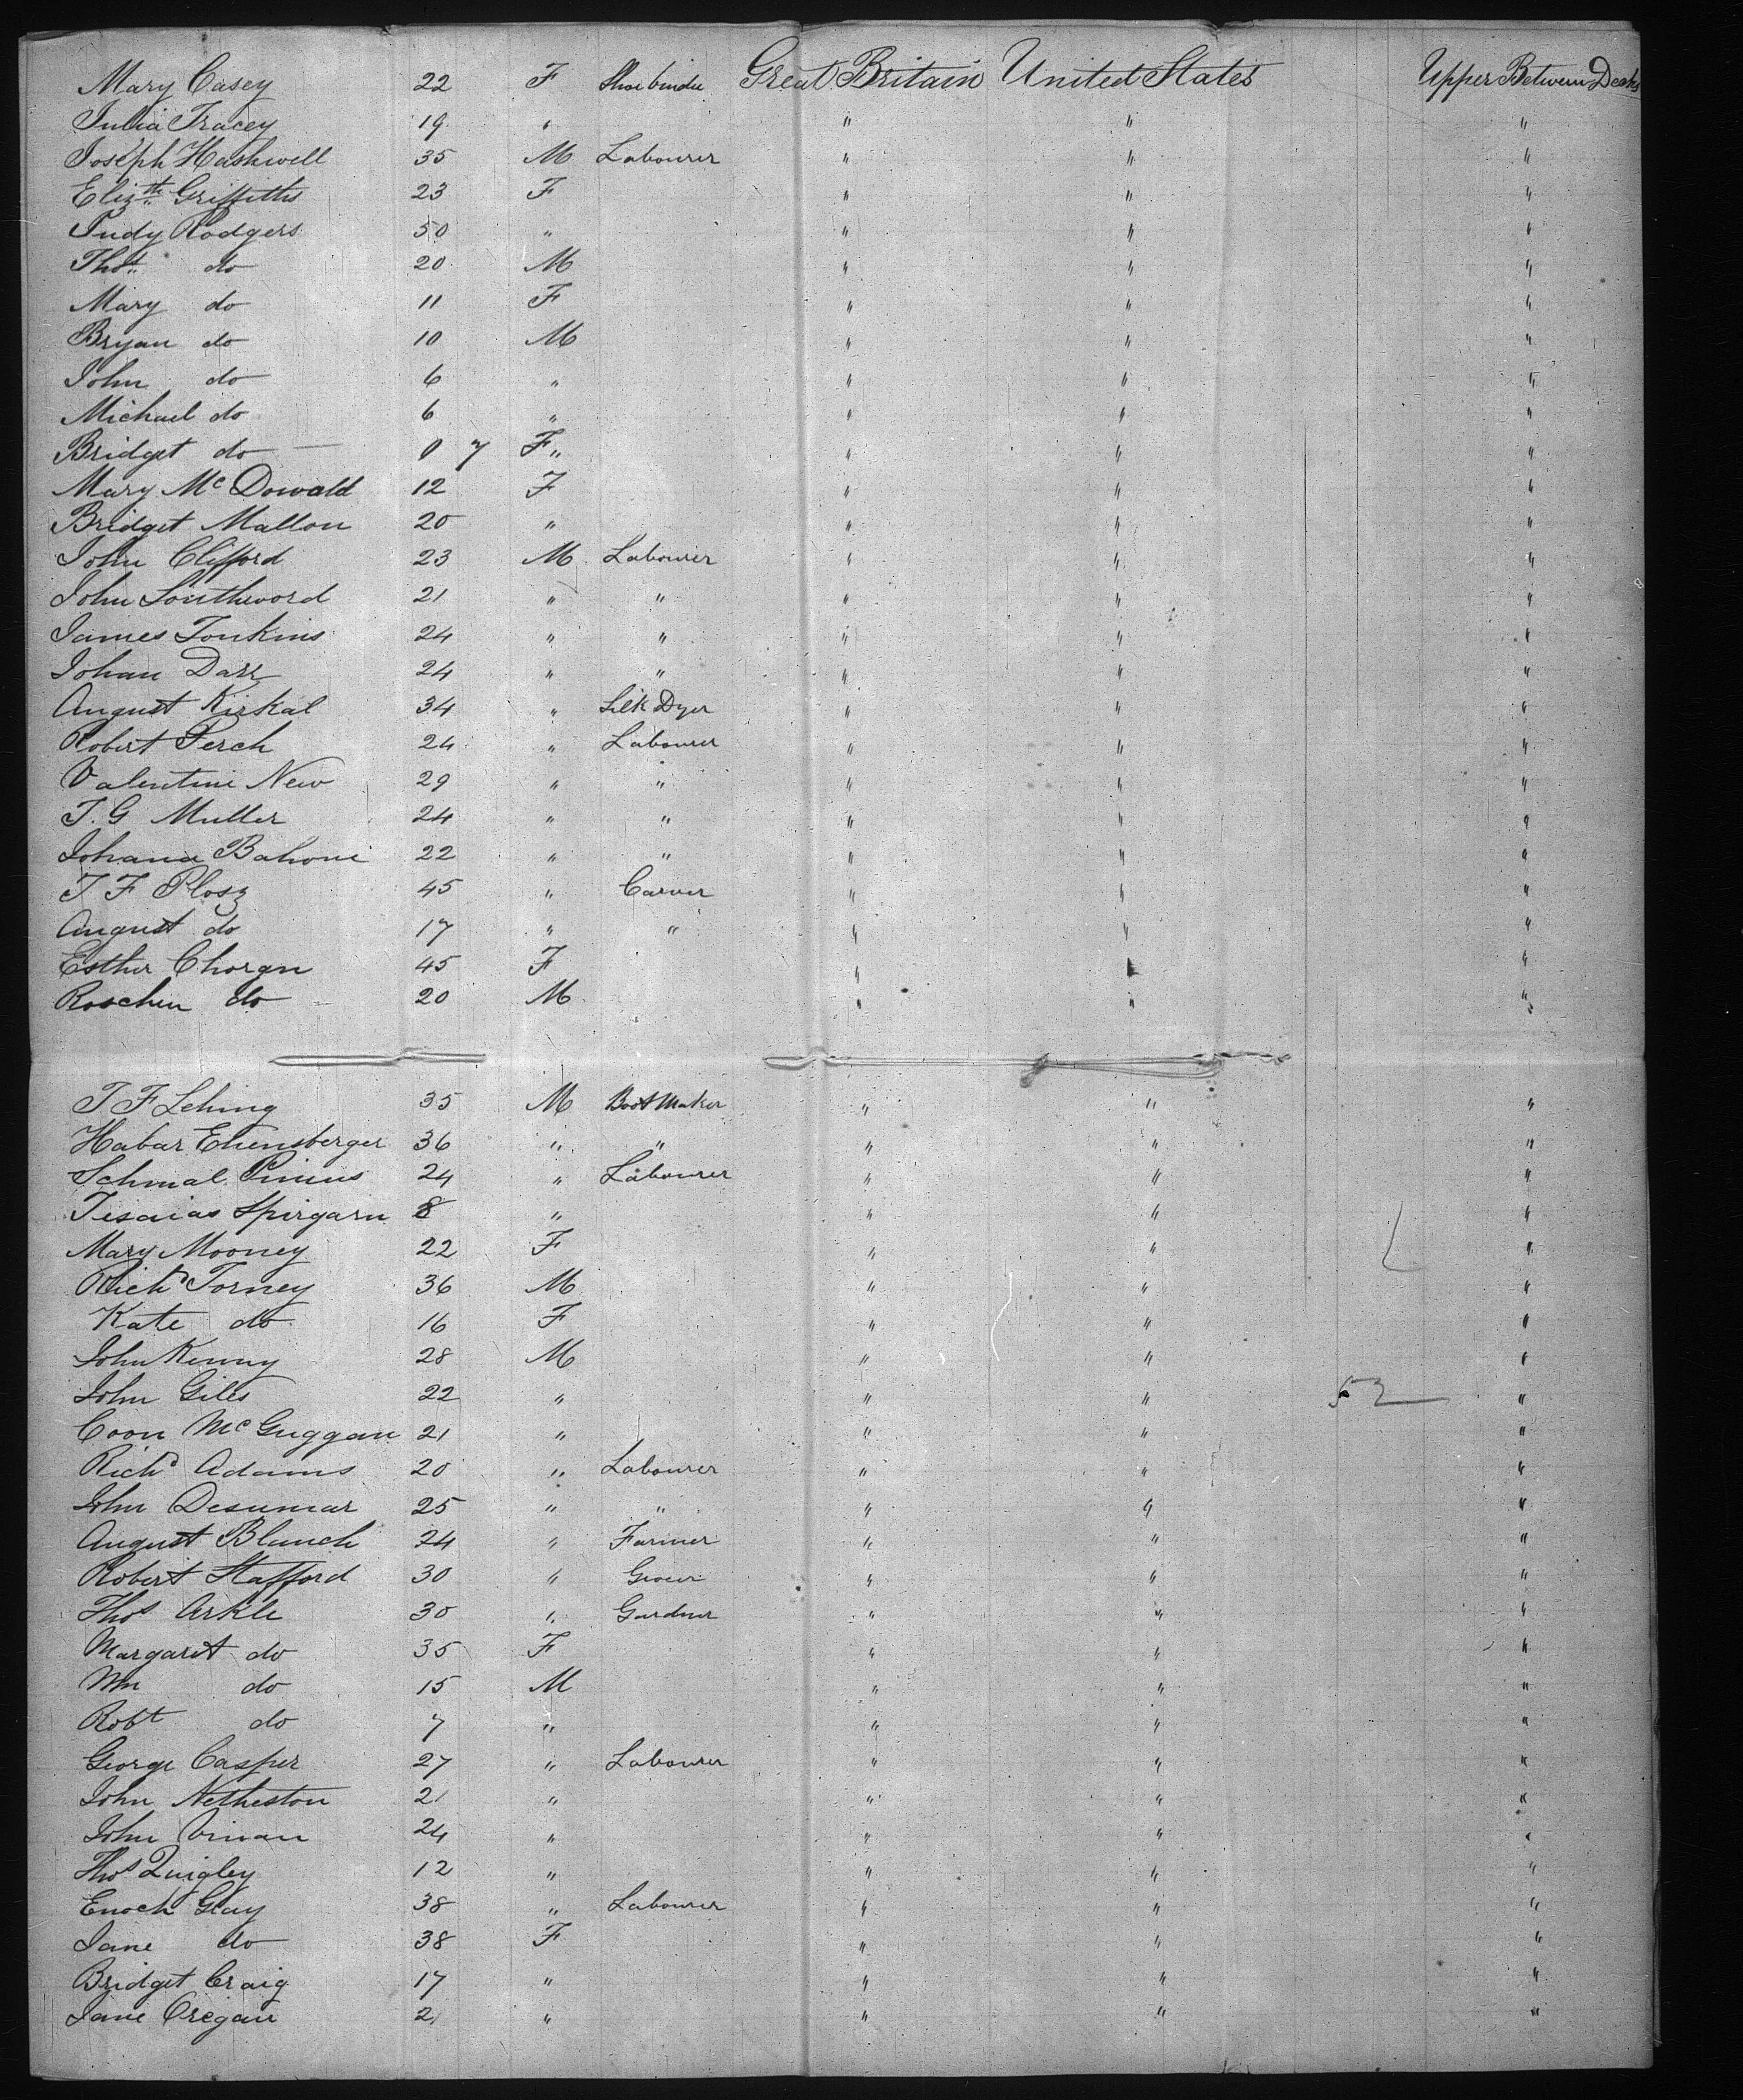 Mary Casey 22 F Shoe binder Great Britain United States Upper Between Decks
Julia Tracey 19 " " " "
Joseph Hashwell 35 M Labourer " " "
Elizth Griffiths 23 F " " "
Judy Rodgers 50 " " " "
Thos do 20 M " " "
Mary do 11 F " " "
Bryan do 10 M " " "
John do 6 " " " "
Michael do 6 " " " "
Bridget do — 0 7 F " " " "
Mary Mc Dowald 12 F " " "
Bridget Mallon 20 " " " "
John Clifford 23 M Labourer " " "
John Southword 21 " " " " "
James Tonkins 24 " " " " "
Johan Darr 24 " " " " "
August Kirkal 34 " Silk Dyer " " "
Robert Perch 24 " Labourer " " "
Valentine New 29 " " " " "
J. G Muller 24 " " " " "
Johana Bahoni 22 " " " " "
J F Plosz 45 " Carver " " "
August do 17 " " " " "
Esther Chorgn 45 F " " "
Roschen do 20 M " " "
J F Lehing 35 M Boot Maker " " "
Habar Ehensberger 36 " " " " "
Schmal Pinius 24 " Labourer " " "
Jesaias Spirgarn 8 " " " "
Mary Mooney 22 F " " "
Richd Torney 36 M " " "
Kate do 16 F " " "
John Kenny 28 M " " "
John Giles 22 " " " 52 "
Coon Mc Guggan 21 " " " "
Richd Adams 20 " Labourer " " "
John Desumar 25 " " " " "
August Blanch 24 " Farmer " " "
Robert Stafford 30 " " " "
Thos Arkle 30 " Gardner " " "
Margaret do 35 F " " "
Wm do 15 M " " "
Robt do 7 " " " "
George Casper 27 " Labourer " " "
John Netheston 21 " " " "
John Vinan 24 " " " "
Thos Quigley 12 " " " "
Enoch Gay 38 " Labourer " " "
Jane do 38 F " " "
Bridget Craig 17 " " " "
Jane Cregan 21 " " " "